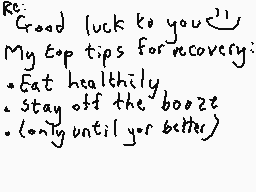 Re:
Good luck to you
My top tips for recovery:
• Eat healthily
• Stay off the booze
• (only until yor better)